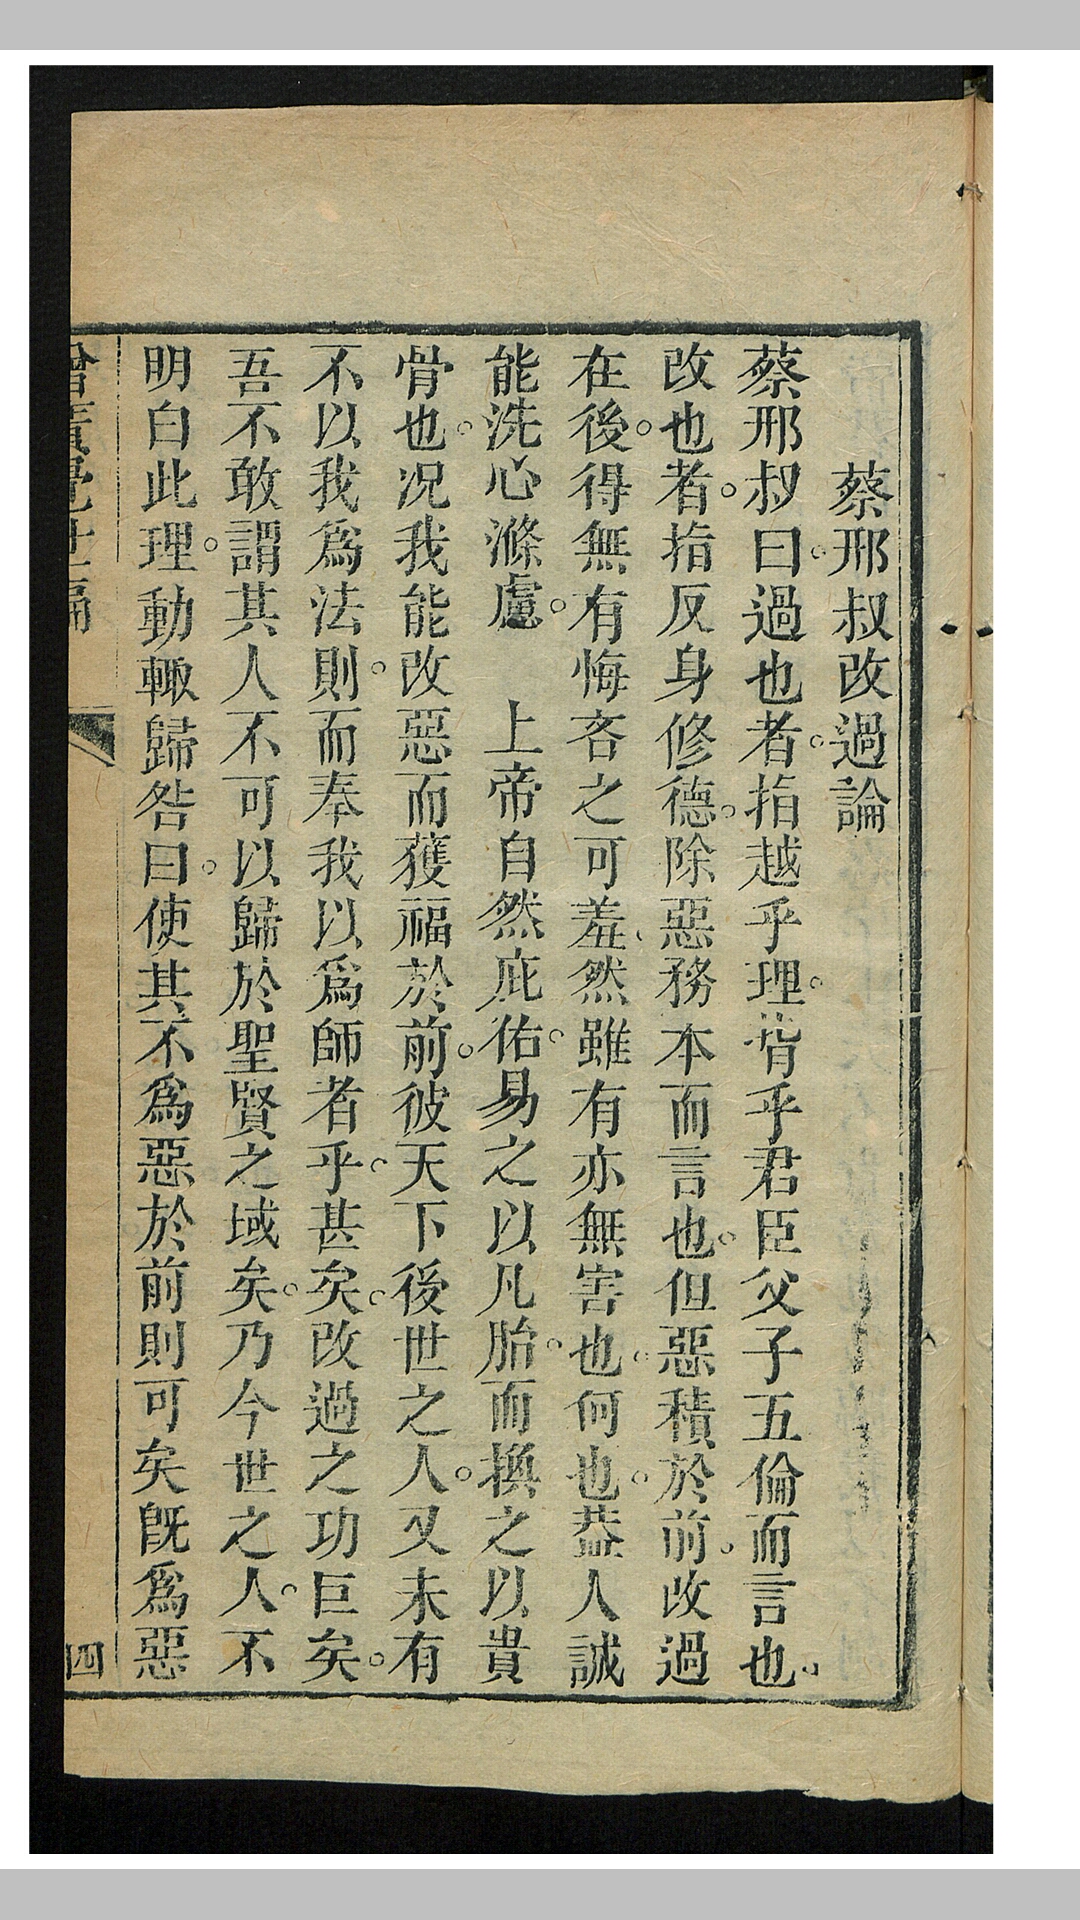 蔡邢叔改過論
蔡邢叔曰。過也者。指越乎理。背乎君臣父子五倫而言也。
改也者。指反身修德。除惡務本而言也。但惡積於前。改過
在後。得無有悔吝之可羞、然雖有亦無害也。何也。葢人誠
能洗心滌慮。　上帝自然庇佑。易之以凡胎。而換之以貴
骨也。况我能改惡而獲福於前。彼天下後世之人。又未有
不以我爲法則。而奉我以爲師者乎。甚矣。改過之功巨矣。
吾不敢謂其人不可以歸於聖賢之域矣。乃今世之人。不
明白此理。動輙歸咎曰。使其不爲惡於前則可矣旣爲惡
四